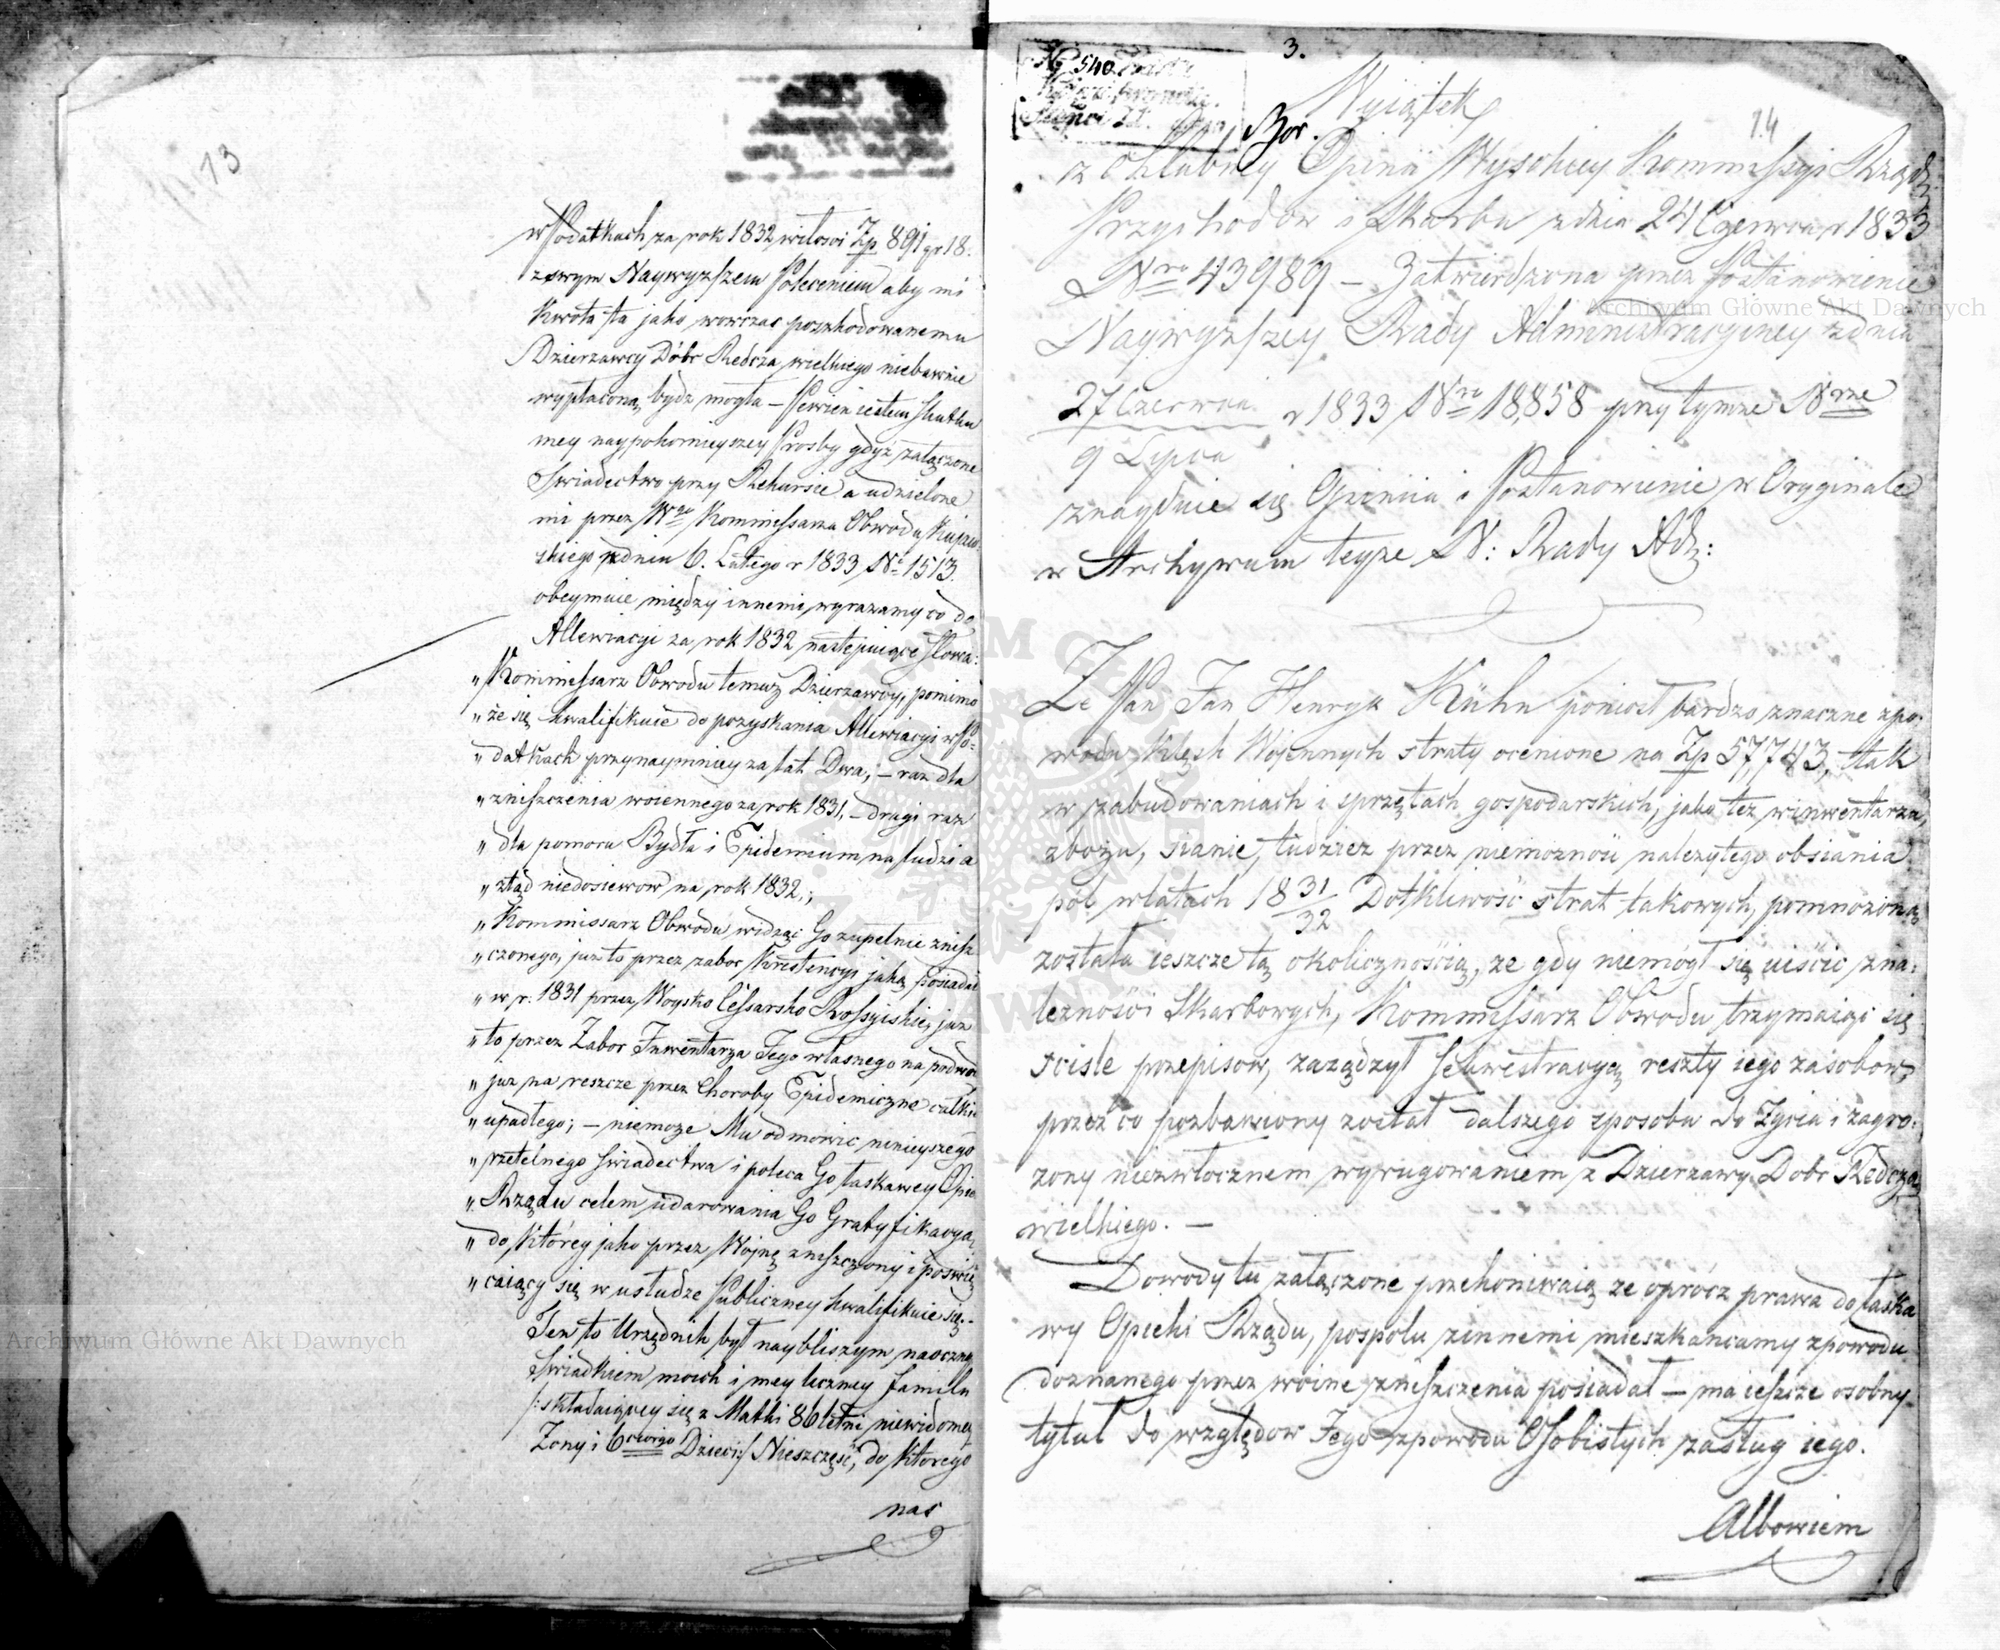 13
w Podatkach za rok 1832 w ilosci Zp 891 gr 18.
z swym Naywyzszem Poleceniem aby mi
Kwota ta jako wowczas poszkodowanemu
Dzierzawcy Dóbr Redcza wielkiego niebawnie
wypłaconą bydz mogła – Pewien iestem skutku
mey naypokornieyszey Prosby gdyż załączone
Swiadectwo przy Rekursie a udzielone
mi przez Wgo Kommissarza Obwodu Kujaw-
skiego z dnia 6. Lutego r 1833 No 1513.
obeymuie między innemi wyrazamy co do
Allewiacyi za rok 1832 następuiące słowa:
„ Kommissarz Obwodu temuz Dzierzawcy, pomimo
„ że się kwalifikuie do pozyskania Allewiacyi w Po-
„ datkach przynaymniey za lat Dwa; – raz dla
„ zniszczenia woiennego za rok 1831, – drugi raz
„ dla pomoru Bydła i Epidemium na ludzi a
„ ztąd niedosiewow na rok 1832.;
„ Kommissarz Obwodu widząc Go zupełnie znisz
„ czonego, juz to przez zabor Krestencyi jaką posiadał
„ w r: 1831 przez Woysko Cessarsko Rossyiskie, juz
„ to przez Zabor Inwentarza Jego własnego na podwod
„ juz na reszcze przez Choroby Epidemiczne całkie
„ upadłego; – niemoze Mu odmowic ninieyszego
„ rzetelnego Swiadectwa i poleca Go łaskawey Opie
„ Rządu celem udarowania Go Gratyfikacyą,
„ do Którey jako przez Woynę zniszczony i poswię
„ caiący się w usłudze Publiczney kwalifikuie się. –
Ten to Urzędnik był naybliszym naoczny
Swiadkiem moich i mey liczney familii
/: składaiącey się z Matki 86 letni niewidomey
Zony i 6ciorgo Dzieci :/ Nieszczęść, do Ktorego
nas
3.
14
No 540
Wyiątek
z Chlubney Opinii Wysokiey Kommissyi Rząd:
Przychodow i Skarbu z dnia 24 Czerwca r 1833
Nro 43989 – Zatwierdzona przez Postanowienie
Naywyzszey Rady Administracyiney z dnia
27 Czerwca r 1833 Nro 18,858 przy tymze Nrze
9 Lipca
znayduie się Opiniia i Postanowienie w Oryginale
w Archywum teyze N: Rady Ad:
Ze Pan Jan Henryk Kühn poniosł bardzo znaczne z po-
wodu Klęsk Wojennych straty ocenione na Zp 57,743, tak
w zabudowaniach i sprzętach gospodarskich, jako tez w inwentarzu,
zbożu, sianie, tudziez przez niemoznosc nalezytego obsiania
pol w latach 1831/32 Dotkliwość strat takowych, pomnozoną
została ieszcze tą okolicznością, ze gdy niemógł się uiścić z na-
leznosci Skarbowych, Kommissarz Obwodu trzymaiąc się
scisle przepisow, zarządzył Sekwestracyą reszty iego zasobow,
przez co pozbawiony został dalszego sposobu do Zycia i zagro-
zony niezwłocznem wyrugowaniem z Dzierzawy Dobr Redcza
wielkiego. –
Dowody tu załączone przekoniwaią ze oprócz prawa do łaska
wy Opieki Rządu, pospołu z innemi mieszkancamy z powodu
doznanego przez woine zniszczenia posiadał – ma ieszcze osobny
tytuł do względow Jego z powodu Osobistych zasług iego.
Albowiem
Archiwum Główne Akt Dawnych
Archiwum Główne Akt Dawnych